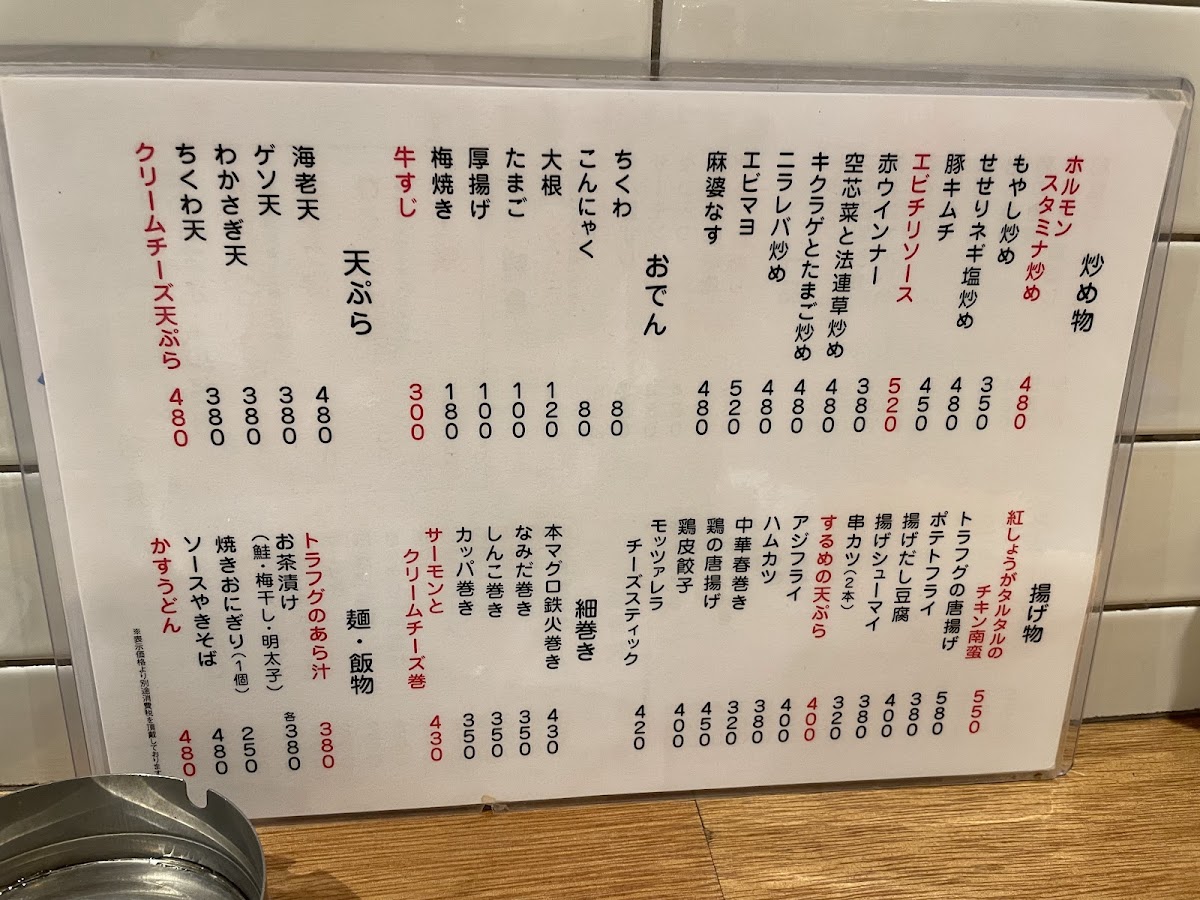 炒め物
ホルモン
スタミナ炒め 480
もやし炒め 350
せせりネギ塩炒め 480
豚キムチ 450
エビチリソース 520
赤ウインナー 380
空芯菜と法連草炒め 480
キクラゲとたまご炒め 480
ニラレバ炒め 480
エビマヨ 520
麻婆なす 480
おでん
ちくわ 80
こんにゃく 80
大根 120
たまご 100
厚揚げ 100
梅焼き 180
牛すじ 300
天ぷら
海老天 480
ゲソ天 380
わかさぎ天 380
ちくわ天 380
クリームチーズ天ぷら 480
揚げ物
紅しょうがタルタルの
チキン南蛮 550
トラフグの唐揚げ 580
ポテトフライ 380
揚げだし豆腐 400
揚げシューマイ 380
串カツ(2本) 320
するめの天ぷら 400
アジフライ 400
ハムカツ 380
中華春巻き 320
鶏の唐揚げ 450
鶏皮餃子 400
モッツァレラ
チーズスティック 420
細巻き
本マグロ鉄火巻き 430
なみだ巻き 350
しんこ巻き 350
カッパ巻き 350
サーモンと
クリームチーズ巻 430
麺・飯物
トラフグのあら汁 380
お茶漬け
(鮭・梅干し・明太子) 各380
焼きおにぎり(1個) 250
ソースやきそば 480
かすうどん 480
※表示価格より別途消費税を頂戴しております